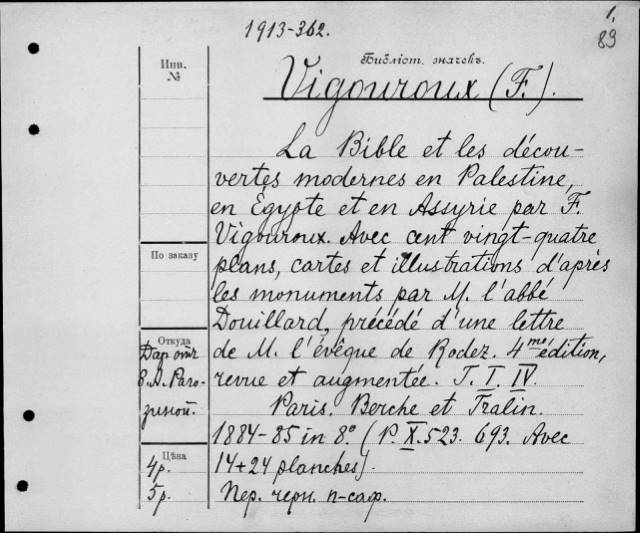 1913-362.
1.
89
Инв.
№
Библіот. значекъ.
Vigouroux (F.).
La Bible et les décou-
vertes modernes en Palestine,
en Egypte et en Assyrie par F.
Vigouroux. Avec cent vingt-quatre
По заказу
plans, cartes et illustrations d'après
les monuments par M. l'abbé
Douillard, précédé d'une lettre
Откуда
Дар от
de M. l'évêque de Rodez. 4me édition,
В.А. Раго-
revue et augmentée. T. I. IV.
зиной.
Paris. Berche et Tralin.
1884-85 in 8.° (P. X. 523. 693. Avec
Цѣна
4р.
14+24 planches).
5р.
Пер. черн. п-саф.